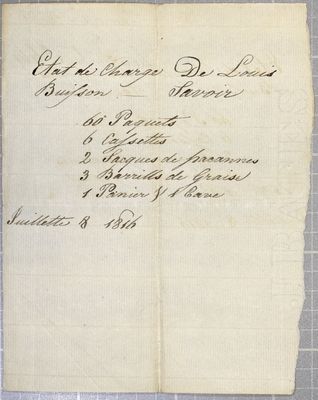 Etat de Charge De Louis
Buisson — Savoir
60 Paquets
6 Cassettes
2 Sacques de pacannes
3 Barrills de Graise
1 Panier & 1 Cave
Juillette 8 1816